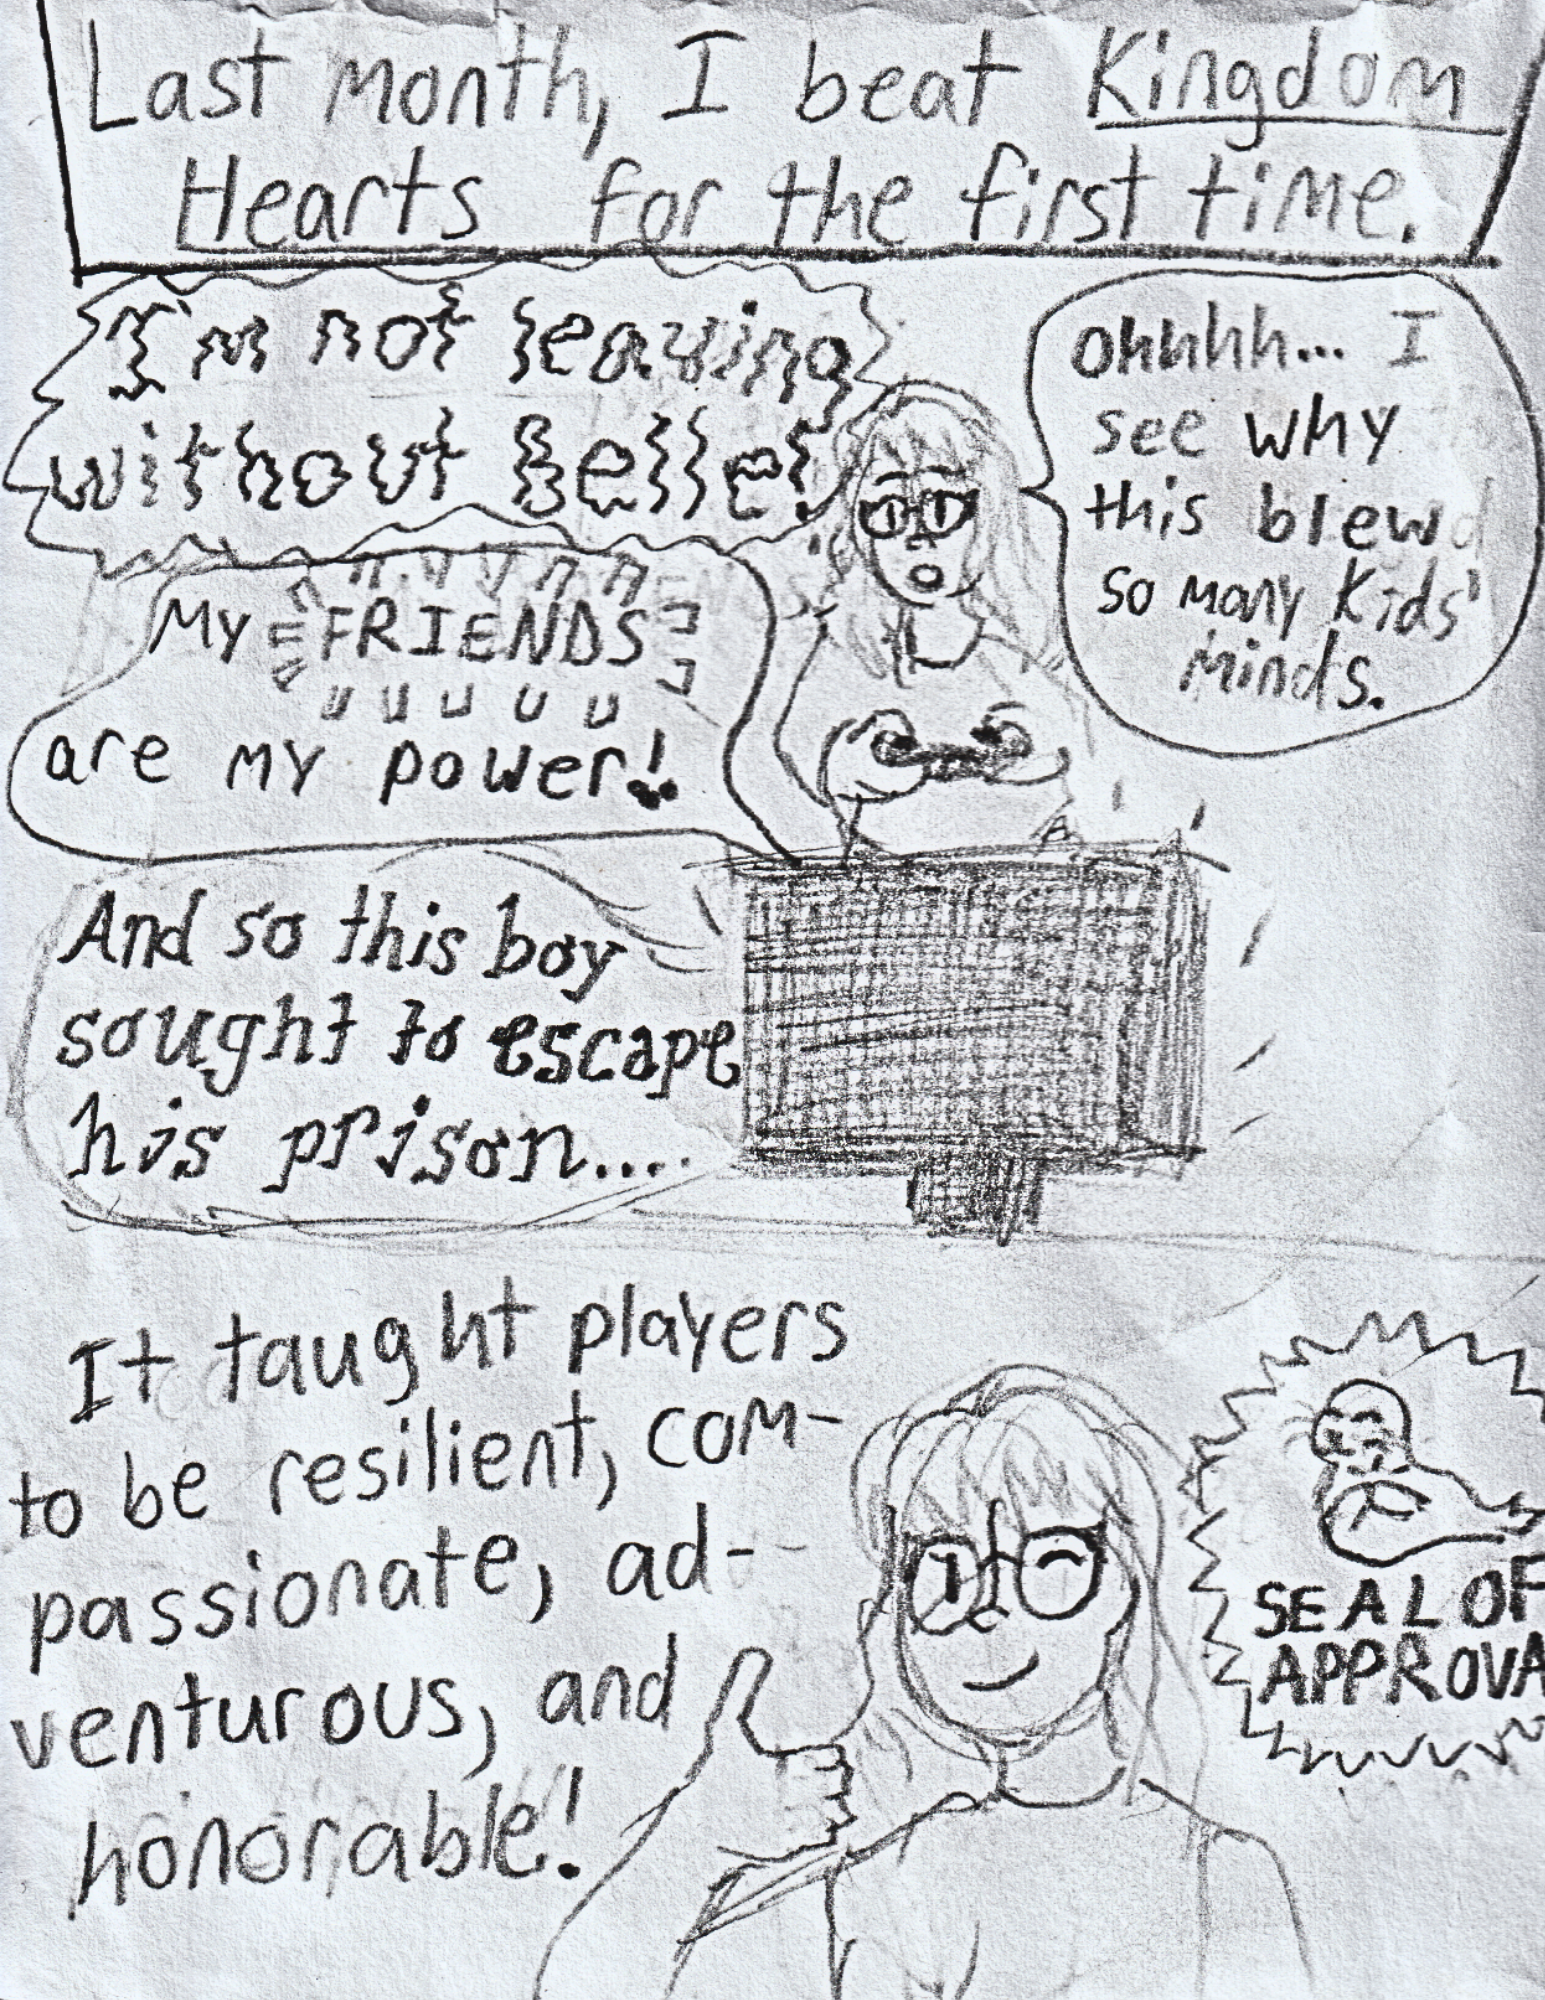 Last month, I beat Kingdom
Hearts for the first time.
I'm not leaving
without Belle!
ohhhh... I
see why
this blew
so many kids'
minds.
My FRIENDS
are my power!
And so this boy
sought to escape
his prison....
It taught players
to be resilient, com-
passionate, ad-
venturous, and
honorable!
SEAL OF
APPROVA